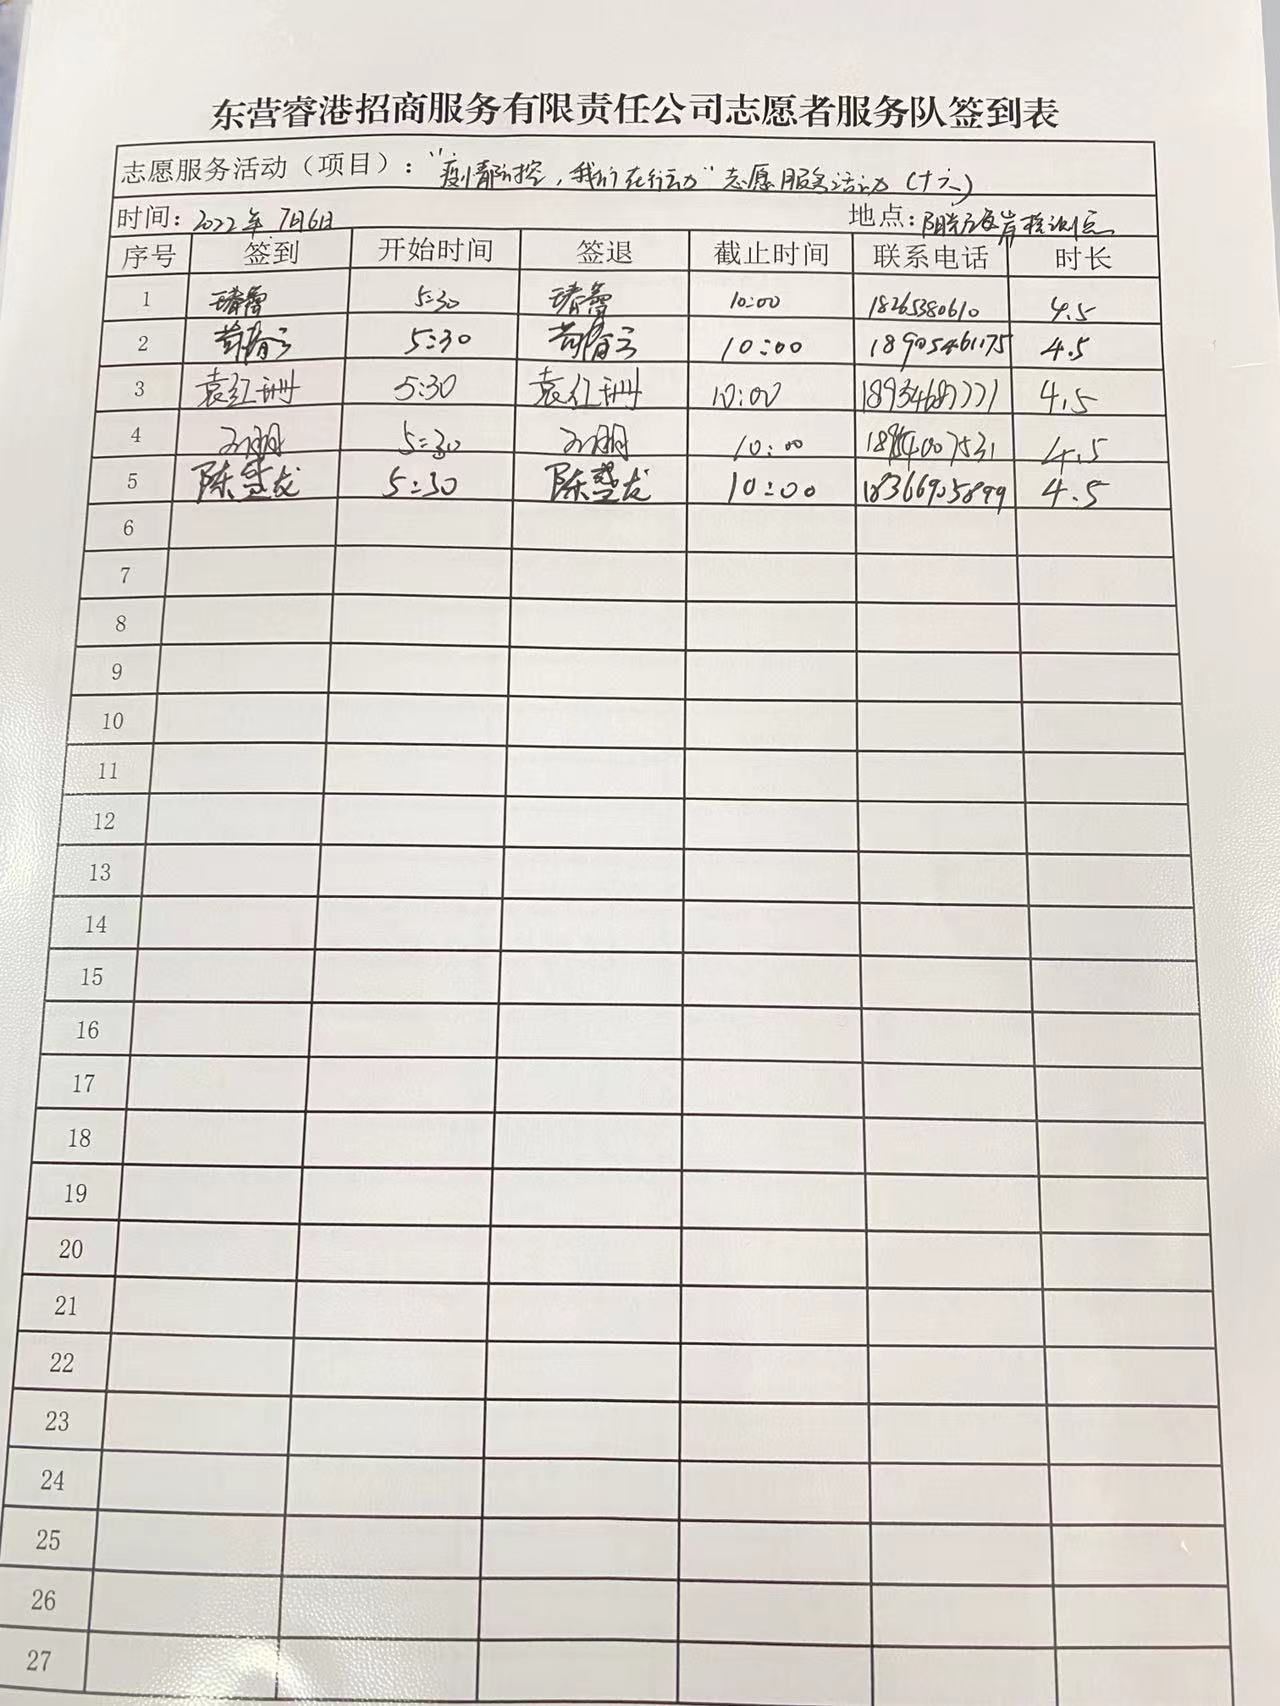 东营睿港招商服务有限责任公司志愿者服务队签到表
志愿服务活动（项目）：“疫情防控，我们在行动”志愿服务活动（十六）
时间：2022年7月6日 地点：阳光海岸检测点
序号 签到 开始时间 签退 截止时间 联系电话 时长
1 5:30 10:00 18265380610 4.5
2 5:30 10:00 18905461175 4.5
3 袁红珊 5:30 袁红珊 10:00 4.5
4 5:30 10:00 4.5
5 陈楚龙 5:30 陈楚龙 10:00 18366905899 4.5
6
7
8
9
10
11
12
13
14
15
16
17
18
19
20
21
22
23
24
25
26
27